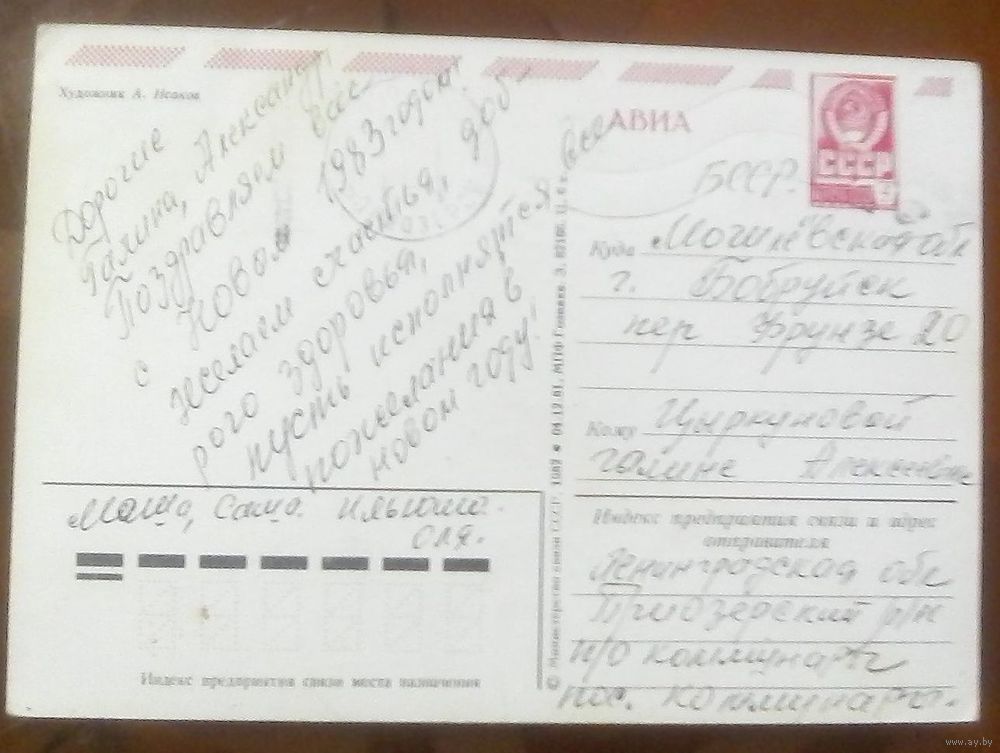 Художник А. Исаков
АВИА
СССР
Дорогие
Галина, Александр,
Поздравляем вас
с Новом 1983 годом.
желаем счастья, доб
рого здоровья, все
пусть исполняется
пожелания в
новом году!
Маша, Саша. Ильюша.
Оля.
Индекс предприятия связи места назначения
БССР.
Куда Могилевская обл
г. Бобруйск
пер Фрунзе 20
Кому Цыркуновой
Галине Алексеевне
Индекс предприятия связи и адрес
отправителя
Ленинградская обл
Приозерский р/н
п/о коммунары
пос. коммунары.
© Министерство связи СССР, 1982
www.ay.by